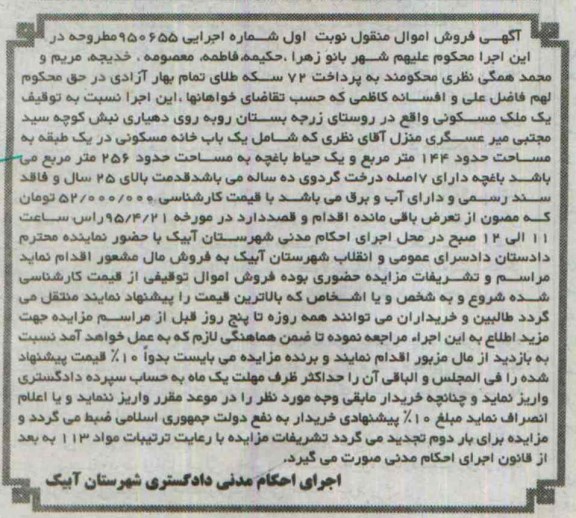 آگهی فروش اموال منقول نوبت اول شماره اجرایی ۹۵۰۶۵۵مطروحه در
این اجرا محکوم علیهم شهر بانو زهرا ،حکیمه،فاطمه، معصومه ، خدیجه، مریم و
محمد همگی نظری محکومند به پرداخت ۷۲ سکه طلای تمام بهار آزادی در حق محکوم
لهم فاضل علی و افسانه کاظمی که حسب تقاضای خواهانها ،این اجرا نسبت به توقیف
یک ملک مسکونی واقع در روستای زرجه بستان روبه روی دهیاری نبش کوچه سید
مجتبی میر عسگری منزل آقای نظری که شامل یک باب خانه مسکونی در یک طبقه به
مساحت حدود ۱۴۴ متر مربع و یک حیاط باغچه به مساحت حدود ۲۵۶ متر مربع می
باشد باغچه دارای ۷اصله درخت گردوی ده ساله می باشدقدمت بالای ۲۵ سال و فاقد
سند رسمی و دارای آب و برق می باشد با قیمت کارشناسی ۵۲/۰۰۰/۰۰۰ تومان
که مصون از تعرض باقی مانده اقدام و قصددارد در مورخه ۹۵/۴/۲۱راس ساعت
۱۱ الی ۱۲ صبح در محل اجرای احکام مدنی شهرستان آبیک با حضور نماینده محترم
دادستان دادسرای عمومی و انقلاب شهرستان آبیک به فروش مال مشعور اقدام نماید
مراسم و تشریفات مزایده حضوری بوده فروش اموال توقیفی از قیمت کارشناسی
شده شروع و به شخص و یا اشخاص که بالاترین قیمت را پیشنهاد نمایند منتقل می
گردد طالبین و خریداران می توانند همه روزه تا پنج روز قبل از مراسم مزایده جهت
مزید اطلاع به این اجراء مراجعه نموده تا ضمن هماهنگی لازم که به عمل خواهد آمد نسبت
به بازدید از مال مزبور اقدام نمایند و برنده مزایده می بایست بدواً ۱۰٪ قیمت پیشنهاد
شده را فی المجلس و الباقی آن را حداکثر ظرف مهلت یک ماه به حساب سپرده دادگستری
واریز نماید و چنانچه خریدار مابقی وجه مورد نظر را در موعد مقرر واریز ننماید و یا اعلام
انصراف نماید مبلغ ۱۰٪ پیشنهادی خریدار به نفع دولت جمهوری اسلامی ضبط می گردد و
مزایده برای بار دوم تجدید می گردد تشریفات مزایده با رعایت ترتیبات مواد ۱۱۳ به بعد
از قانون اجرای احکام مدنی صورت می گیرد.
اجرای احکام مدنی دادگستری شهرستان آبیک